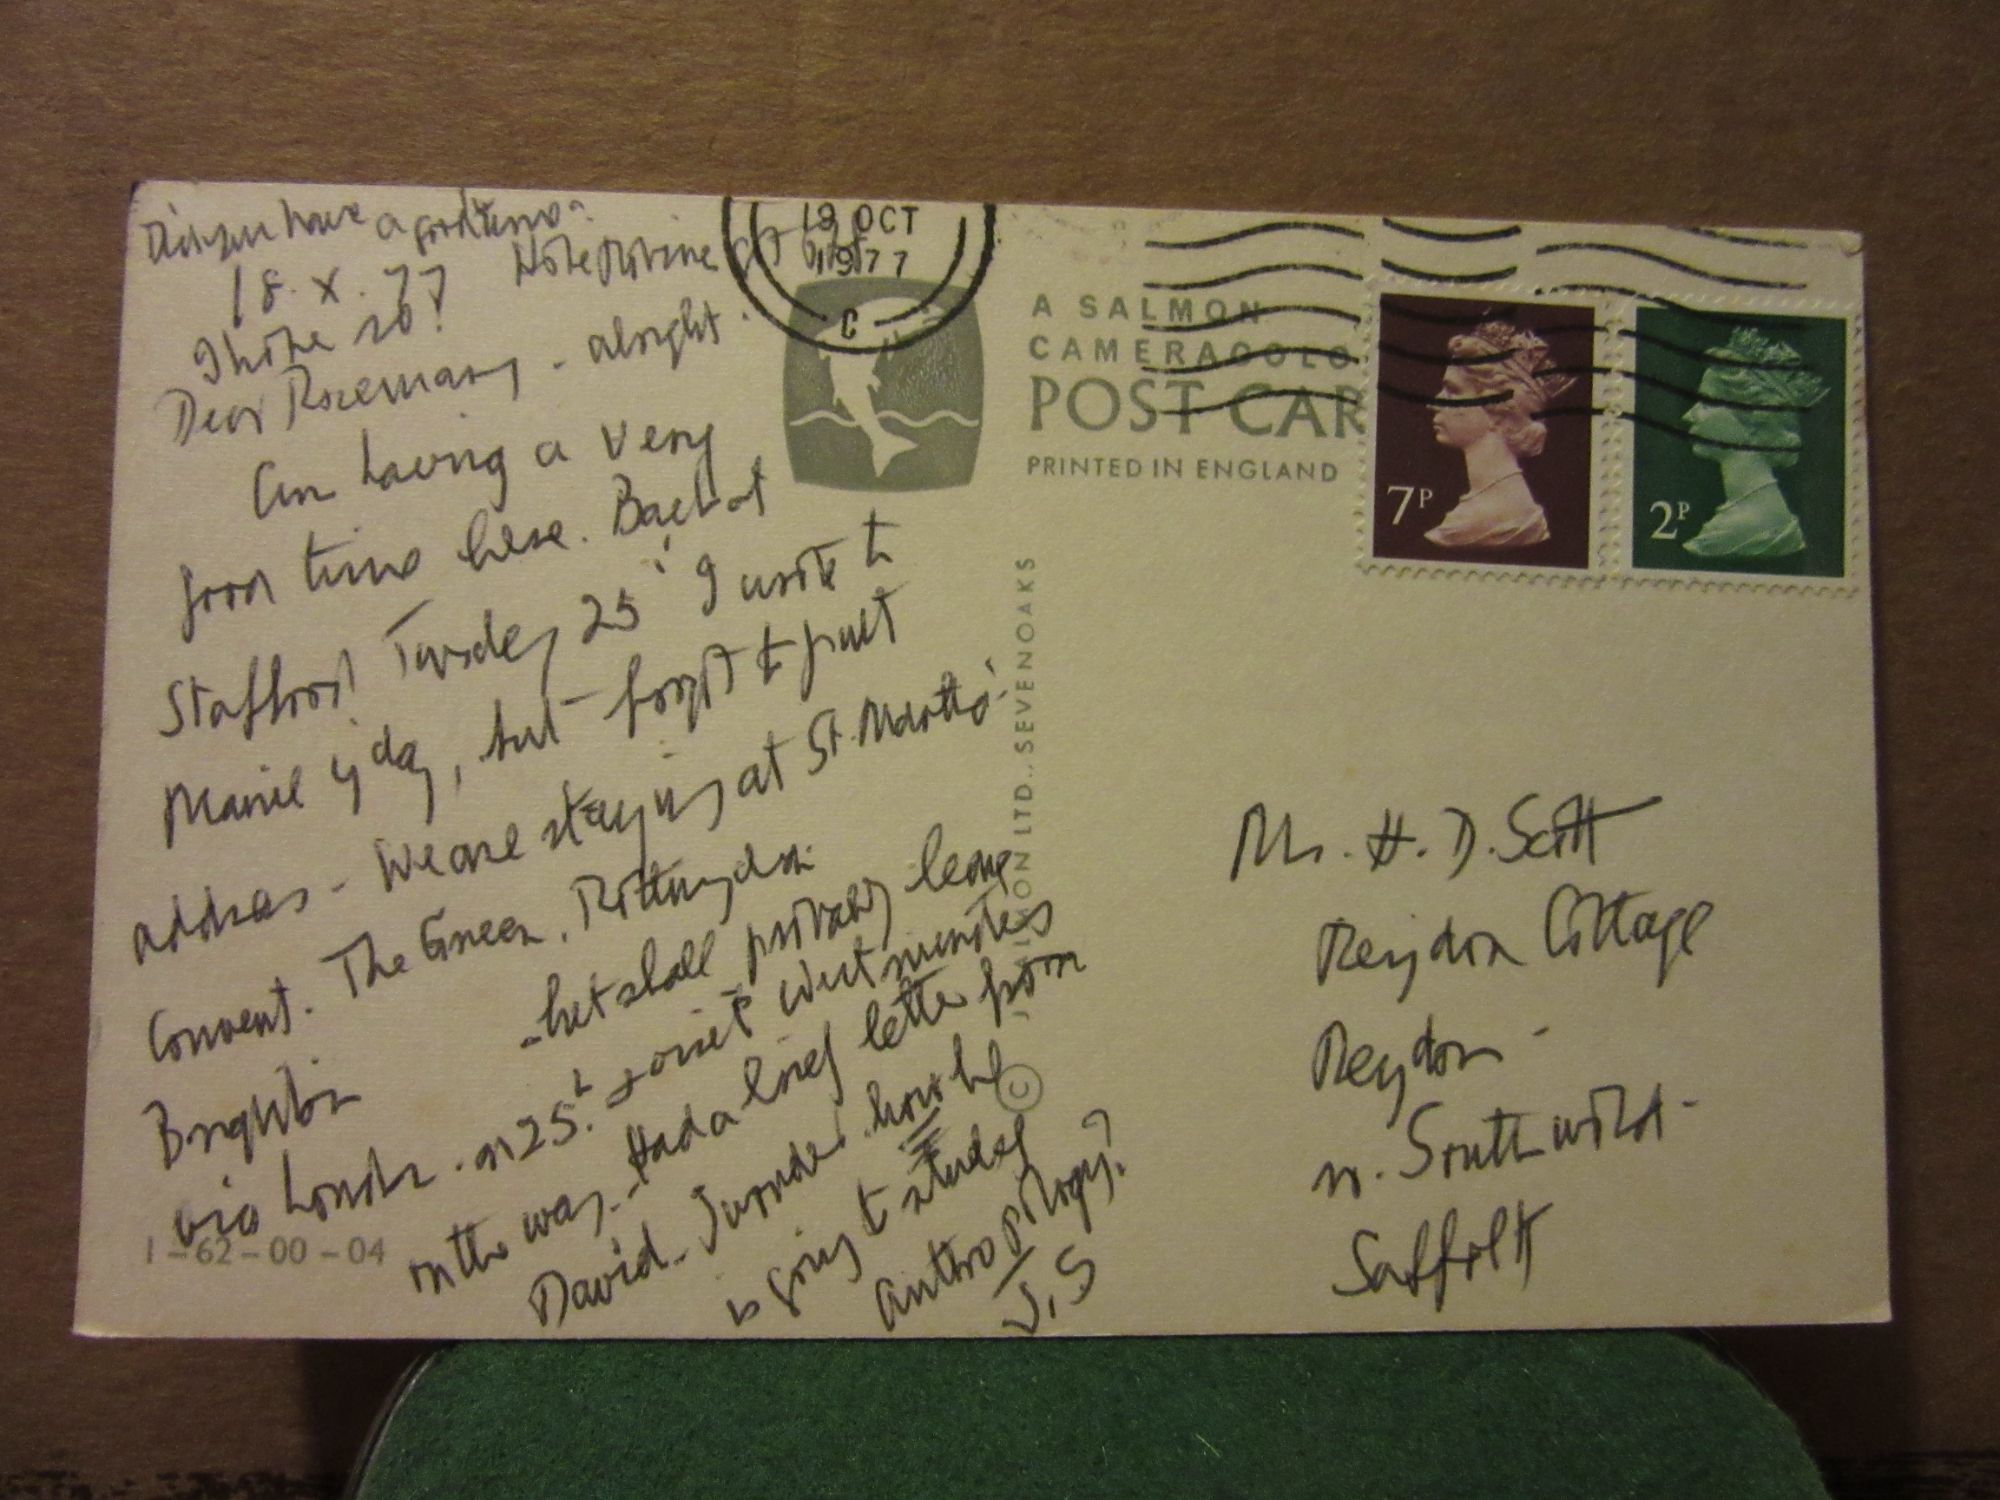 Did you have a good time?
18.X.77 Hope
I hope so!
Dear Rosemary - alright.
Am having a very
good time here. Back at
Stafford Tuesday 25 I wrote to
yday, but forgot to put
address - We are staying at St. Martha's
Convent. The Green. Rottingdean.
Brighton
- but shall probably leave
via London on 25th. & Westminster
on the way - Had a brief letter from
David - I wonder how he
is going to study
Anthropology?
J.S
19 OCT
1977
C
A SALMON
CAMERACOLO
POST CAR
PRINTED IN ENGLAND
7P
2P
SALMON LTD., SEVENOAKS
©
1-62-00-04
H. D. Scott
Reydon Cottage
Reydon -
nr. Southwold -
Suffolk